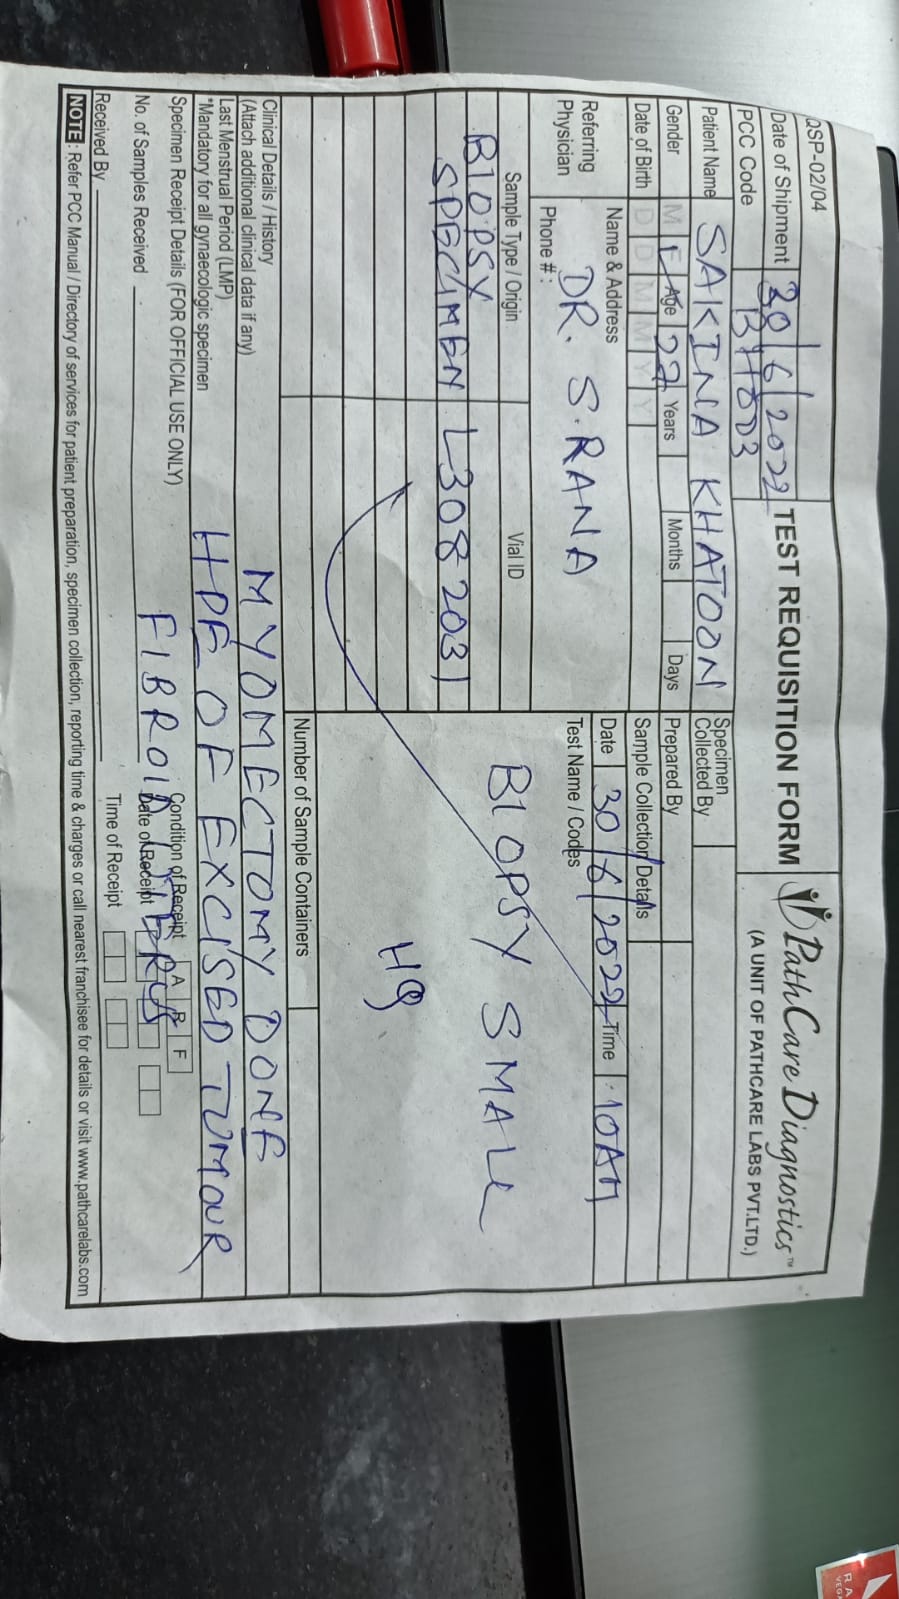 QSP-02/04
Date of Shipment 30/6/2022 TEST REQUISITION FORM PathCare Diagnostics™
PCC Code (A UNIT OF PATHCARE LABS PVT.LTD.)
Patient Name SAKINA KHATOON Specimen Collected By
Gender M F Age 22 Years Months Days Prepared By
Date of Birth D D M M Y Y Sample Collection Details
Referring Physician Name & Address DR. S.RANA Date 30/6/2022 Time 10AM
Phone #: Test Name / Codes
Sample Type / Origin Vial ID
BIOPSY SPECIMEN L3082031 BIOPSY SMALL
H9
Number of Sample Containers
Clinical Details / History MYOMECTOMY DONE
(Attach additional clinical data if any)
Last Menstrual Period (LMP) HPE OF EXCISED TUMOUR
*Mandatory for all gynaecologic specimen
Specimen Receipt Details (FOR OFFICIAL USE ONLY) Condition of Receipt A R F
FIBROID UTERUS
No. of Samples Received Date of Receipt
Received By Time of Receipt
NOTE : Refer PCC Manual / Directory of services for patient preparation, specimen collection, reporting time & charges or call nearest franchisee for details or visit www.pathcarelabs.com